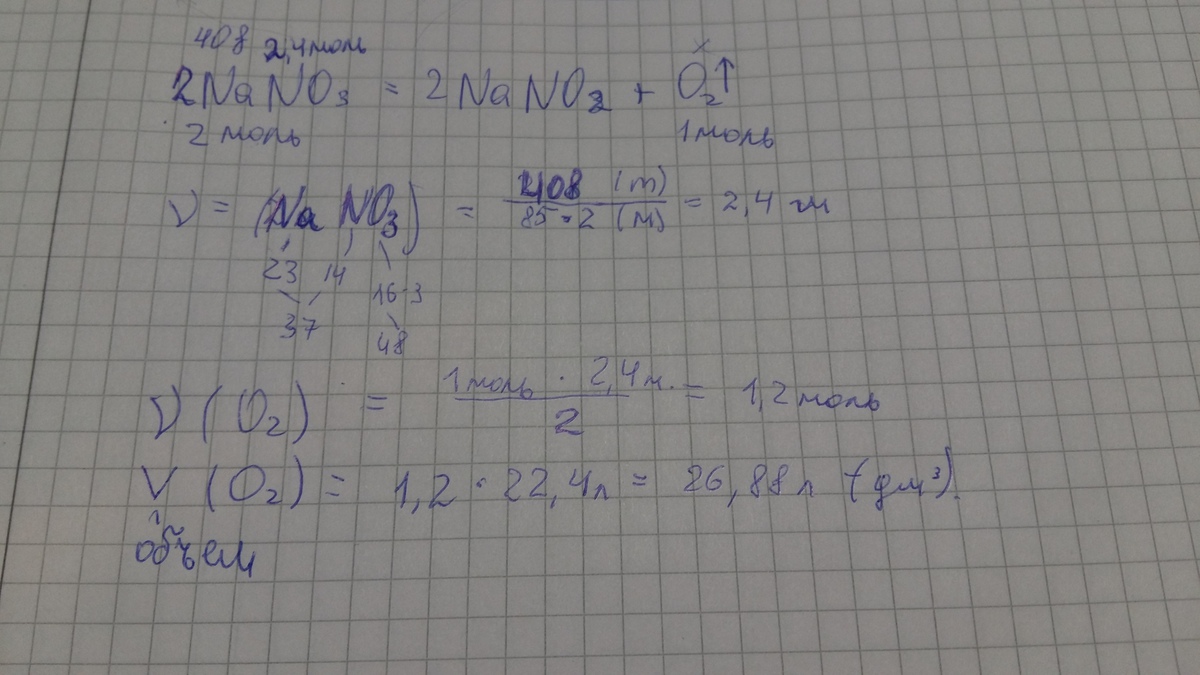 408 2,4 моль x
2NaNO₃ = 2NaNO₂ + O₂↑
2 моль 1 моль
ν = (NaNO₃) = 408 (m) / 85·2 (M) = 2,4
23 14 16·3
37 48
ν (O₂) = 1 моль · 2,4 м. / 2 = 1,2 моль
V (O₂) = 1,2 · 22,4 л = 26,88 л (дм³).
объем